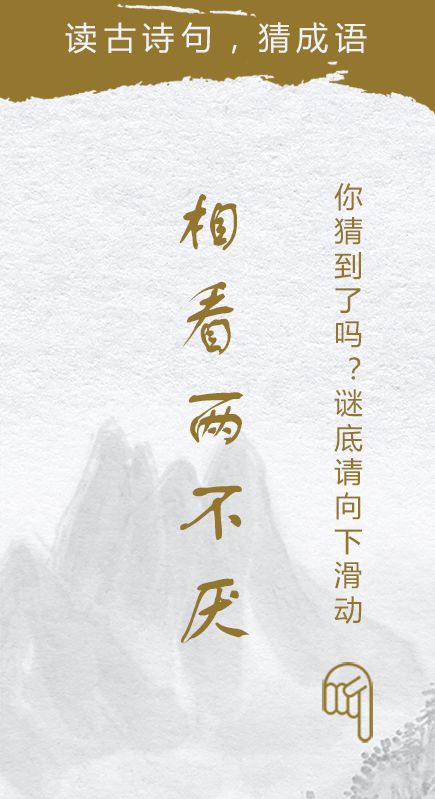 读古诗句，猜成语
你猜到了吗？谜底请向下滑动
相看两不厌